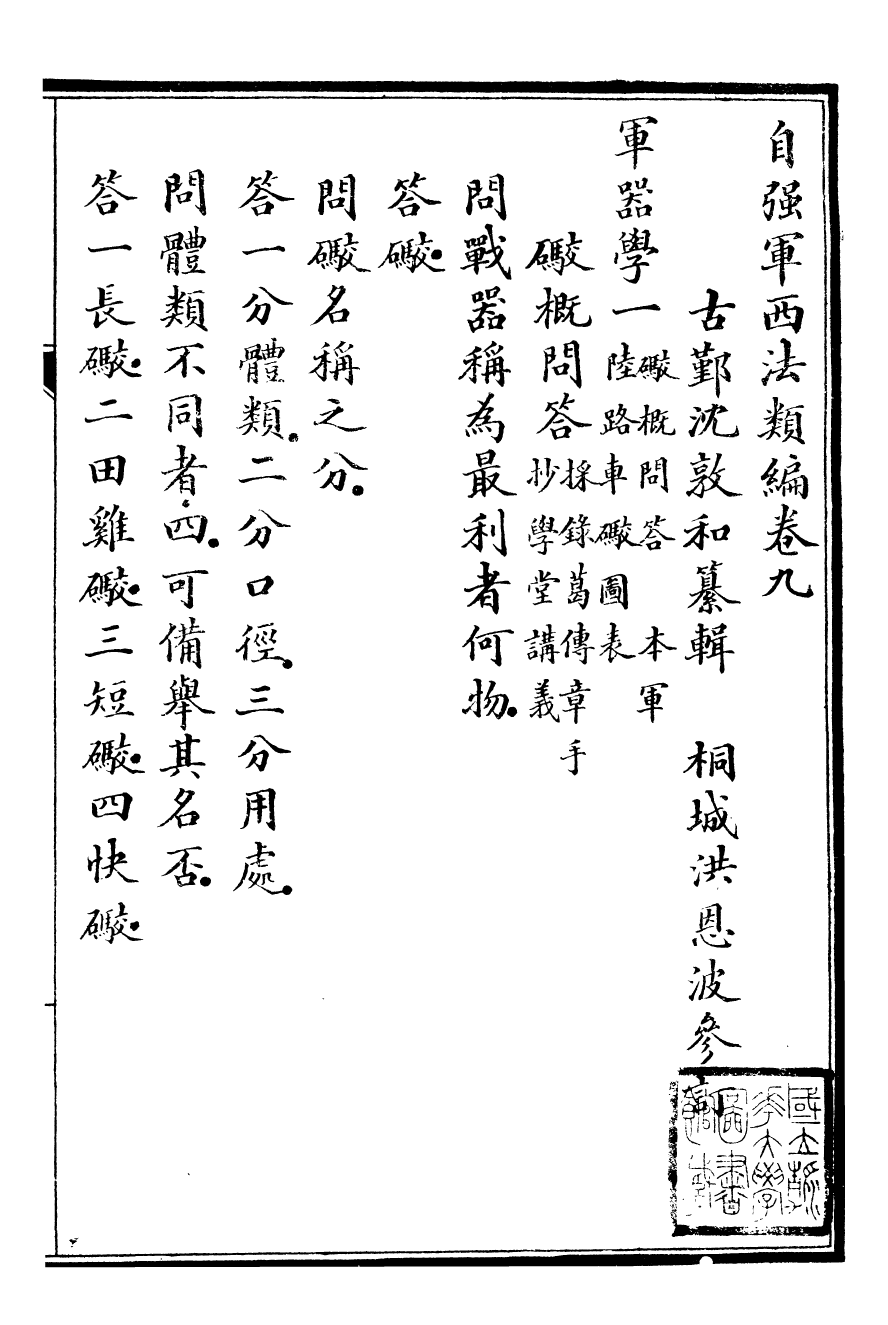 自强軍西法類編卷九
古鄞沈敦和纂輯　桐城洪恩波參訂
軍器學一
礮概問答　本軍
陸路車礮圖表
礮概問答
採錄葛傳章手
抄學堂講義
問戰器稱為最利者何物。
答礮。
問礮名稱之分。
答一分體類。二分口徑。三分用處。
問體類不同者四。可備舉其名否。
答一長礮。二田雞礮。三短礮。四快礮
國立
大學
圖書